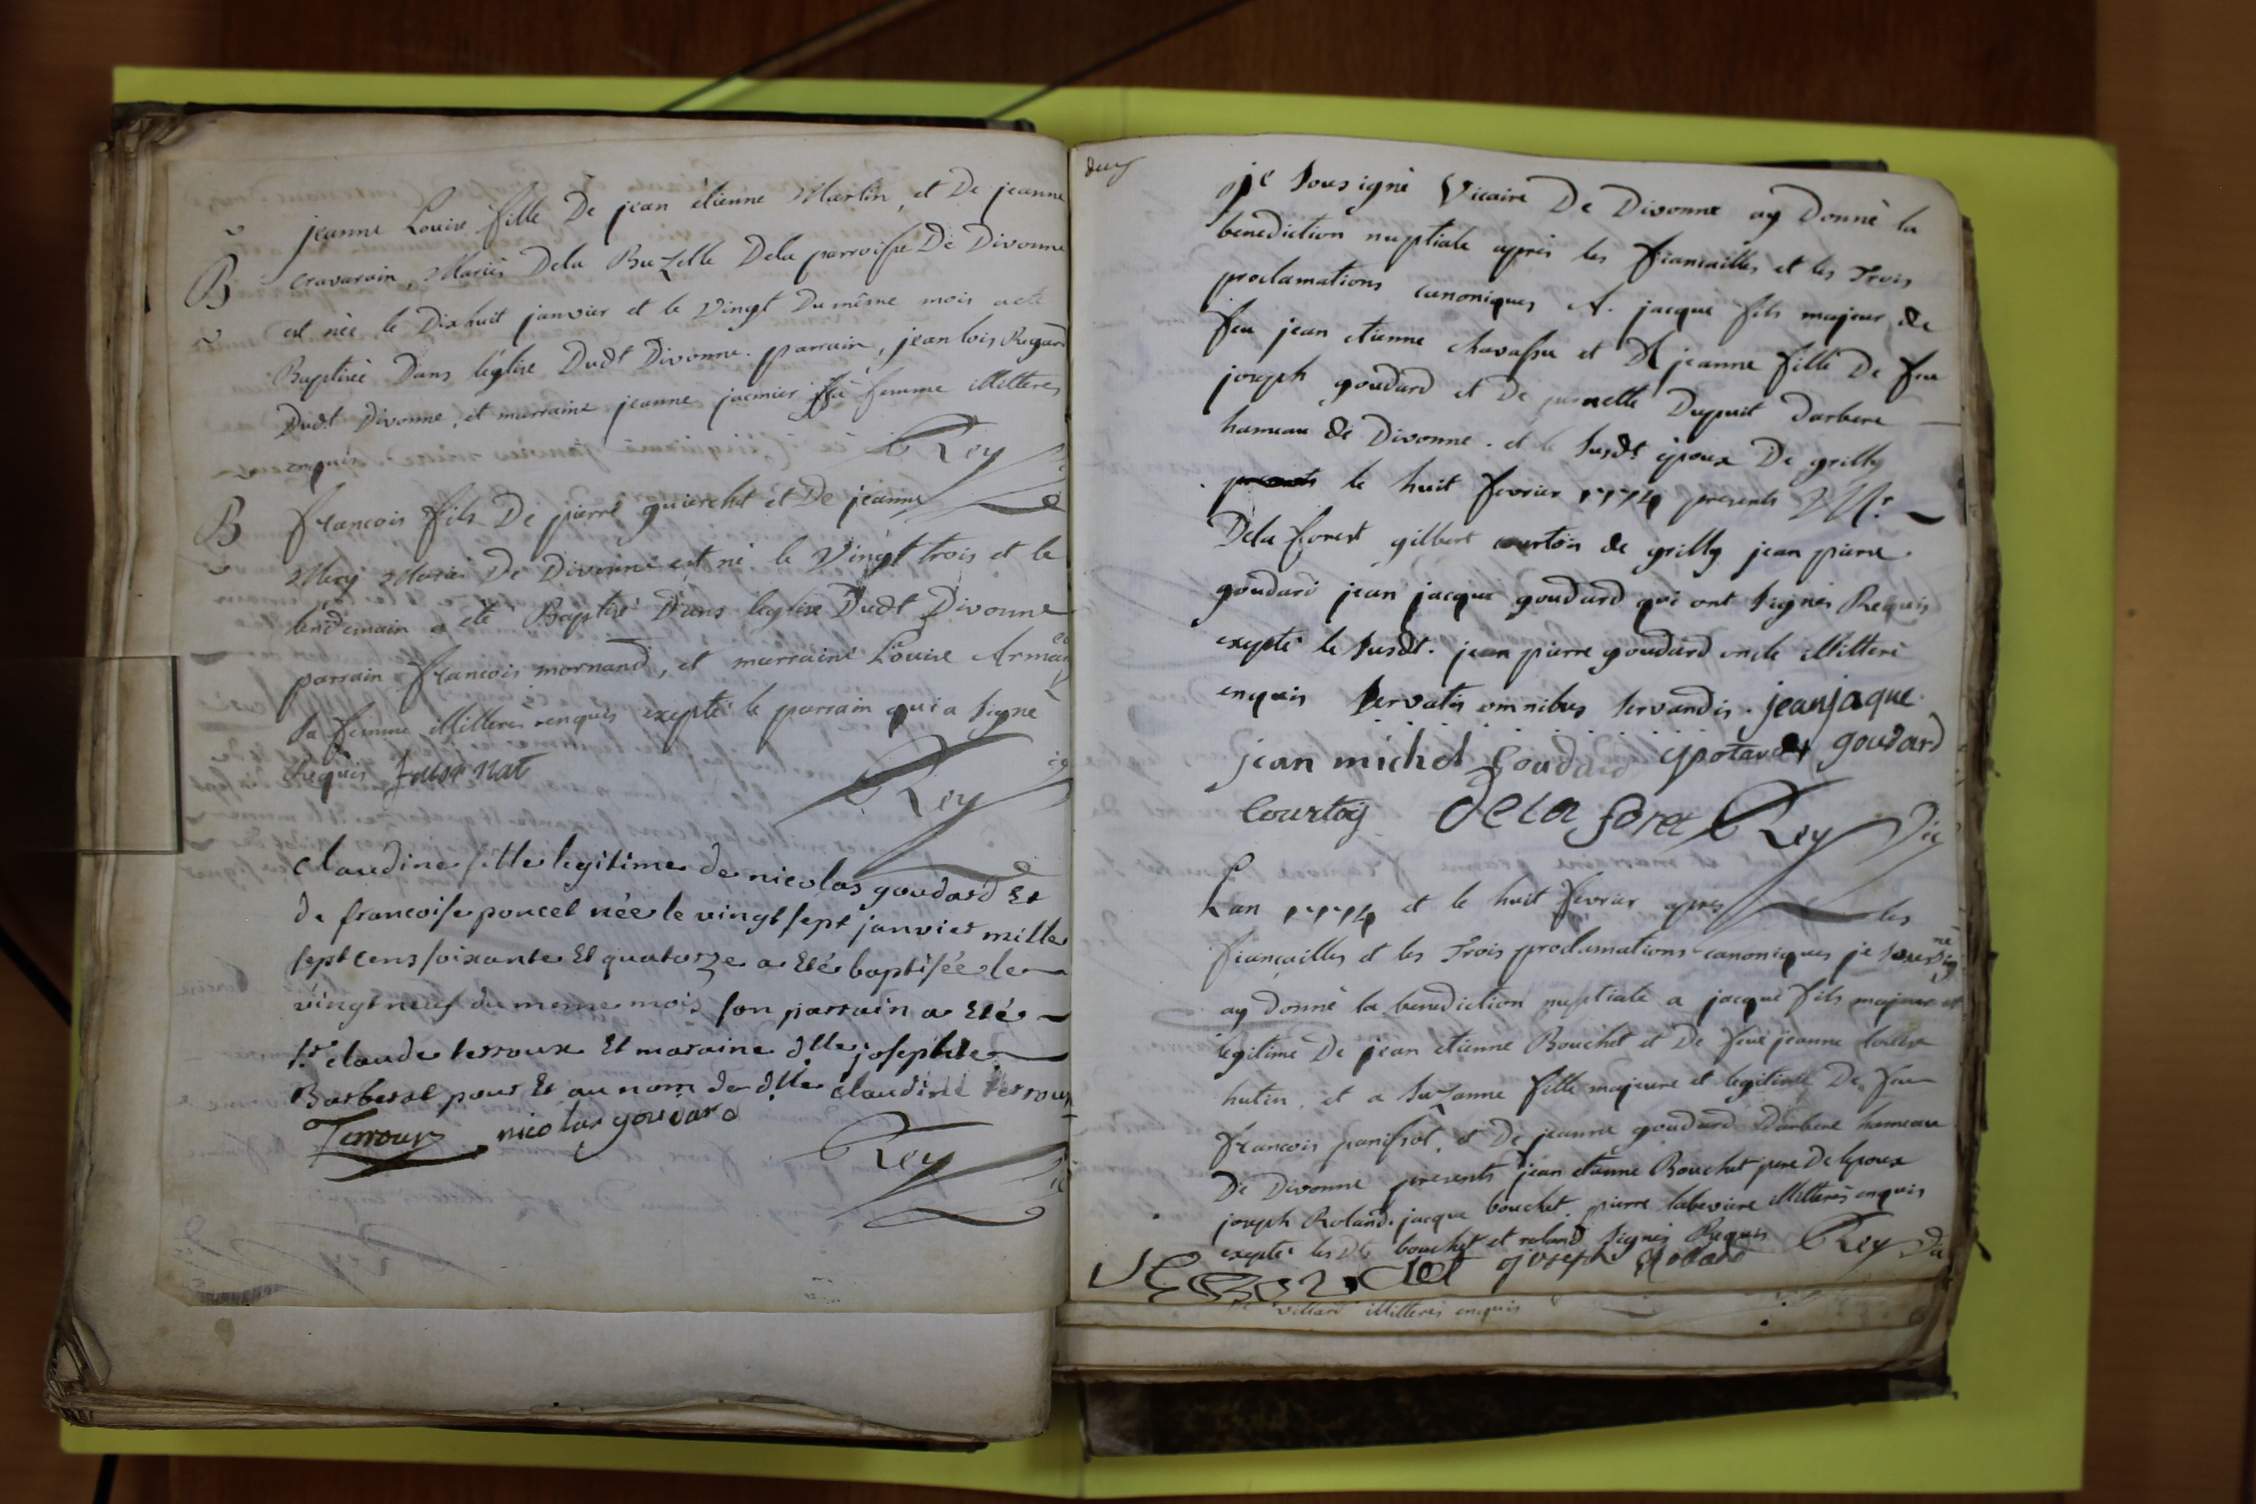 jeanne Louise fille De jean étienne Martin, et De jeanne
B cravarain, Mariés Dela Buzelle Dela parroisse De Divonne
est née le Dixhuit janvier et le Vingt Du même mois a eté
Baptisée Dans léglise Dudt Divonne. parrain, jean lois Regard
Dudt Divonne, et marraine jeanne jacmier sa femme illiteres
enquis Rey
B francois fils De pierre guierchet et De jeanne
Mariés De Divonne est né le Vingt trois et le
lendemain a eté Baptisé Dans léglise Dudt Divonne
parrain francois mornand, et marraine Louise
sa femme illiteres enquis exepté le parrain qui a signé
Requis Rey
claudine fille legitime de nicolas goudard Et
de francoise poncet née le vingt sept janvier mille
sept cens soixante Et quatorze a Eté baptisée le
vingt neuf du meme mois son parrain a Eté
Sr claude terroux Et maraine dlle josephte
Barberat pour Et au nom de dlle claudine terroux
Terroux nicolas goudard
Rey
je sousigné Vicaire De Divonne ay Donné la
benediction nuptiale aprés les fiancailles et les Trois
proclamations canoniques A. jacque fils majeur de
feu jean etienne chavassu et A jeanne fille De feu
joseph goudard et De Dupuit Darbere
hameau de Divonne. et le susdt époux De grilly
le huit fevrier 1774 presents Mr
Dela forest gilbert de grilly jean pierre
goudard jean jacque goudard qui ont signés Requis
exepté le susdt. jean pierre goudard oncle illiteré
enquis servatis omnibus servandis. jean jaque
jean michel goudard goudard
Courtoy De la foret Rey Vic
Lan 1774 et le huit fevrier aprés les
fiançailles et les Trois proclamations canoniques je sousigné
ay donné la benediction nuptiale a jacque fils majeur et
legitime De jean etienne Bouchet et De feüe jeanne loüise
hutin, et a Suzanne fille majeure et legitime De feu
francois panissot, et De jeanne goudard Darbere hameau
De Divonne presents jean etienne Bouchet pere De lepoux
joseph Roland. jacque bouchet. pierre labeviere illiterés enquis
exepté les Dts bouchet et roland signés Requis Rey Vic
joseph Roland
illiterés enquis